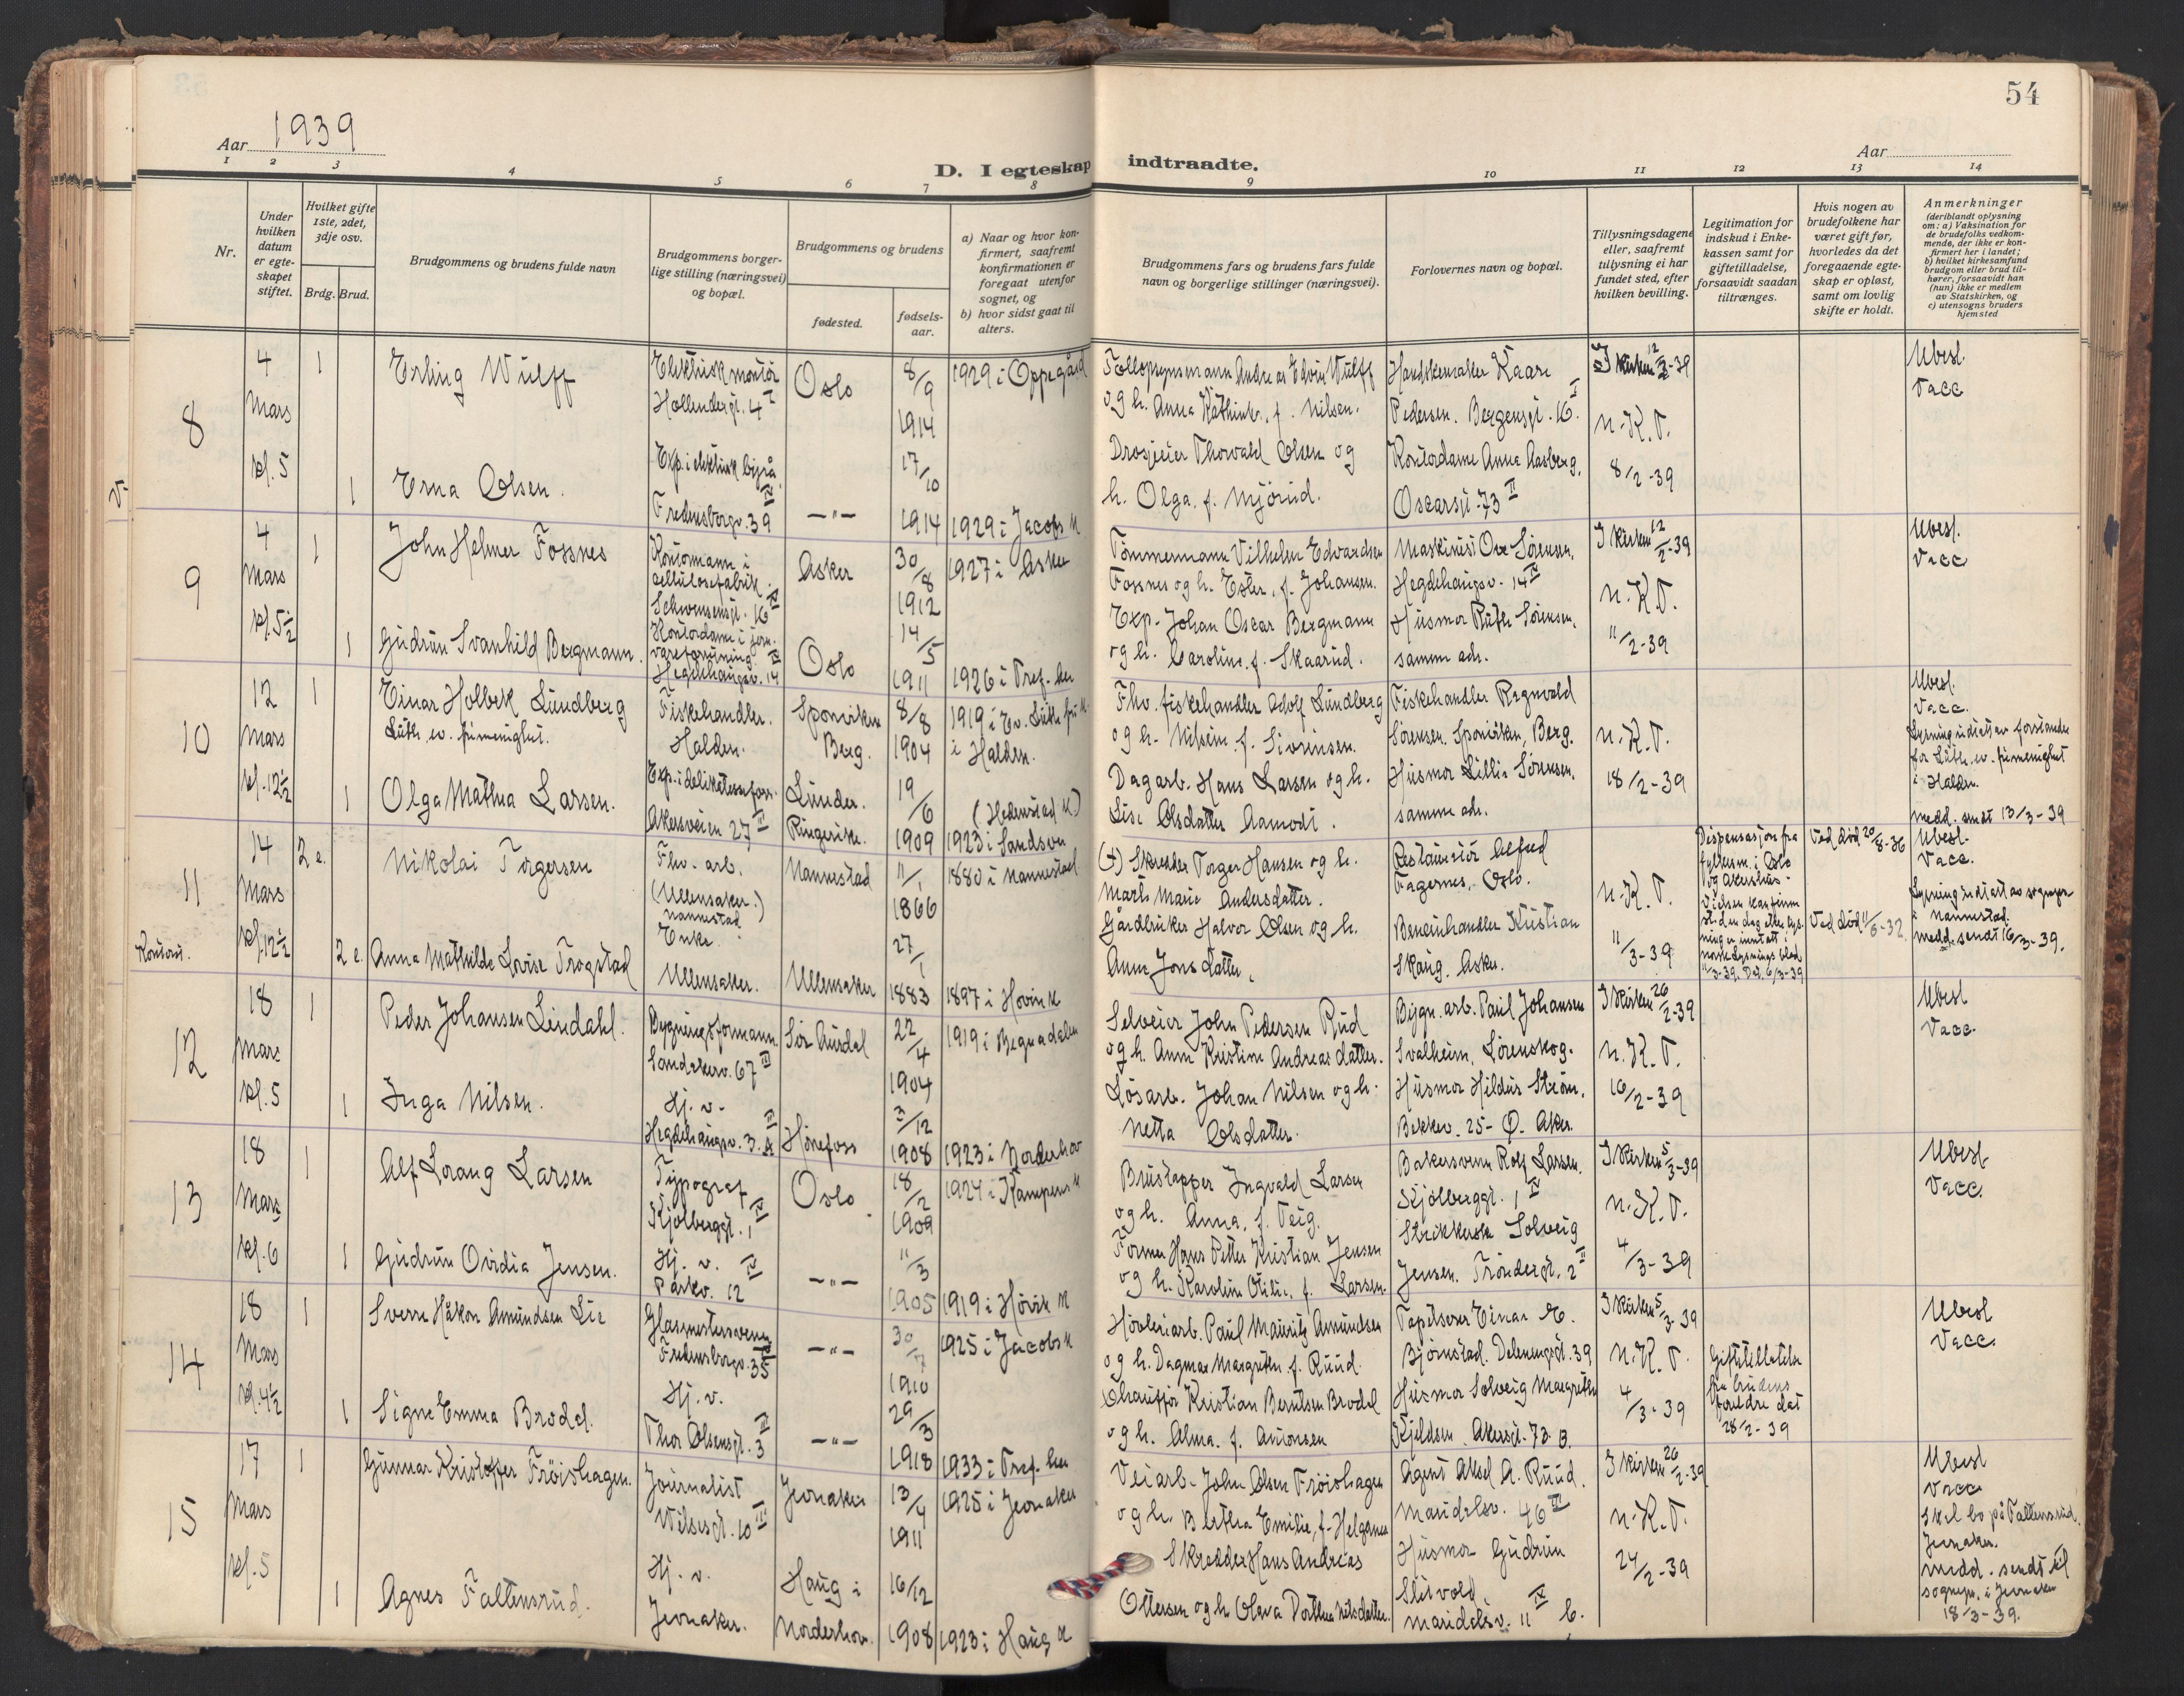 54
Aar 1939
D. I egteskap indtraadte.
Aar
1 2 3 4 5 6 7 8 9 10 11 12 13 14
Nr.
Under hvilken datum er egteskapet stiftet.
Hvilket gifte 1ste, 2det, 3dje osv.
Brdg. Brud.
Brudgommens og brudens fulde navn
Brudgommens borgerlige stilling (næringsvei) og bopæl.
Brudgommens og brudens
fødested.
fødselsaar.
a) Naar og hvor konfirmert, saafremt konfirmationen er foregaat utenfor sognet, og
b) hvor sidst gaat til alters.
Brudgommens fars og brudens fars fulde navn og borgerlige stillinger (næringsvei).
Forlovernes navn og bopæl.
Tillysningsdagene eller, saafremt tillysning ei har fundet sted, efter hvilken bevilling.
Legitimation for indskud i Enkekassen samt for giftetilladelse, forsaavidt saadan tiltrænges.
Hvis nogen av brudefolkene har været gift før, hvorledes da det foregaaende egteskap er opløst, samt om lovlig skifte er holdt.
Anmerkninger
(deriblandt oplysning om: a) Vaksination for de brudefolks vedkommende, der ikke er konfirmert her i landet; b) hvilket kirkesamfund brudgom eller brud tilhører, forsaavidt han (hun) ikke er medlem av Statskirken, og c) utensogns bruders hjemsted
8
4 Mars kl. 5
1
Erling Wulff
Elektrisk montör
Hollendergt. 4 I
Oslo
8/9 1914
1929 i Oppegård
Andreas Edvin Wulff
og h. Anna Kathinka, f. Nilsen.
Handskemaker Kaare
Pedersen. Bergensgt. 16 I.
I kirken 12/2-39
N.K.T.
8/2-39
Ubesl.
Vacc
1
Erna Olsen.
Exp. i elektrisk byrå
Fredensborgv. 39 IV
—"—
17/10 1914
1929 i Jacobs K
Drosjeeier Thorvald Olsen og
h. Olga, f. Mjörud.
Kontordame Anna Aasberg,
Oscarsgt. 73 II
9
4 Mars kl. 5½
1
John Helmer Fossnes
Kontormann i
cellulosefabrik.
Schwensensgt. 16 IV
Asker
30/8 1912
1927 i Asker
Tömmermann Vilhelm Edvardsen
Fossnes og h. Ester, f. Johansen.
Maskinist Ove Sörensen,
Hegdehaugsv. 14 IV
I kirken 12/2-39
N.K.T.
11/2-39
Ubesl.
Vacc
1
Gudrun Svanhild Bergmann.
Kontordame i jern-
vareforretning.
Hegdehaugsv. 14 IV
Oslo
14/5 1911
1926 i Tref. her
Exp. Johan Oscar Bergmann
og h. Caroline, f. Skaarud.
Husmor Ruth Sörensen,
samme adr.
10
12 Mars kl. 12½
1
Einar Holbek Lundberg
Luth. ev. frimenighet.
Fiskehandler.
Halden.
Sponviken
Berg.
8/8 1904
1919 i Ev. Luth fri K
i Halden.
Fhv. fiskehandler Adolf Lundberg
og h. Nilsine, f. Sivrinsen.
Fiskehandler Ragnvald
Sörensen. Sponviken, Berg.
N.K.T.
18/2-39
Ubesl.
Vacc.
Lysning utstedt av forstander
for Luth. ev. frimenighet
i Halden.
Medd. sendt 13/3-39
1
Olga Mathea Larsen.
Exp. i delikatesseforr.
Akersveien 27 III
Lunder.
Ringerike.
19/6 1909
(Hedenstad K)
1923 i Sandsvær
Dagarb. Hans Larsen og h.
Lise Olsdatter Aamodt.
Husmor Lillie Sörensen,
samme adr.
11
14 Mars kl. 12½
Kontoret.
2 e.
Nikolai Torgersen
Fhv. arb.
(Ullensaker.)
Nannestad
Nannestad
11/1 1866
1880 i Nannestad
(+) Skredder Torger Hansen og h.
Marte Marie Andersdatter.
Restauratör Alfred
Fagernes, Oslo.
N.K.T.
11/3-39
Dispensasjon fra
fylkesm. i Oslo
og Akershus.
Vielsen kan finne
sted en dag etter lys-
ning er inntatt i
norske Lysningsblad
11/3-39. Dat. 6/3-39
Ved död 20/8-36
Ved död 11/6-32
Ubesl.
Vacc.
Lysning utstedt av sogneprest
i Nannestad.
Medd. sendt 16/3-39.
2 e.
Anna Mathilde Lovise Trogstad
Enke.
Ullensaker.
Ullensaker
27/1 1883
1897 i Hovin K
Gårdbruker Halvor Olsen og h.
Anne Jonsdatter.
Bensinhandler Kristian
Skaug. Asker.
12
18 Mars kl. 5
1
Peder Johansen Lindahl.
Bygningsformann.
Sandakerv. 67 III
Sör Aurdal
22/4 1904
1919 i Begnadalen
Selveier John Pedersen Rud
og h. Anne Kristine Andreasdatter.
Bygn. arb. Paul Johansen
Svalheim, Lörenskog.
I kirken 26/2-39
N.K.T.
16/2-39
Ubesl
Vacc
1
Inga Nilsen.
Hj. v.
Hegdehaugsv. 3. A II
Hönefoss
3/12 1908
1923 i Norderhov
Lösarb. Johan Nilsen og h.
Netta Olsdatter.
Husmor Hildur Ström,
Bekkev. 25 Ö. Aker.
13
18 Mars kl. 6
1
Alf Lorang Larsen
Typograf
Kjölberggt. 1 IV
Oslo
18/2 1909
1924 i Kampens K
Brustapper Ingvald Larsen
og h. Anna, f. Teig.
Bakersvenn Rolf Larsen.
Kjölberggt. 1 IV
I kirken 5/3-39
N.K.T.
4/3-39
Ubesl
Vacc.
1
Gudrun Ovidia Jensen.
Hj. v.
Parkv. 12 IV
—"—
11/3 1905
1919 i Hövik K
Former Hans Petter Kristian Jensen
og h. Karoline Otilie, f. Larsen.
Strikkerske Solveig
Jensen. Tröndergt. 2 II
14
18 Mars kl. 4½
1
Sverre Håkon Amundsen Lie
Glassmestersvenn
Fredensborgv. 35
—"—
30/7 1910
1925 i Jacobs K
Hövleriarb. Paul Mauritz Amundsen
og h. Dagmar Margrethe, f. Ruud.
Tapetserer Einar E.
Björnstad. Delenenggt. 39
I kirken 5/3-39
N.K.T.
4/3-39
Giftetillatelse
fra brudens
foreldre dat
28/2-39
Ubesl
Vacc.
1
Signe Emma Brodal.
Hj. v.
Thor Olsensgt. 3 III
—"—
29/3 1918
1933 i Tref. her
Chauffør Kristian Berntsen Brodal
og h. Alma, f. Antonsen
Husmor Solveig Margrethe
Kjeldsen. Akersgt. 73 B.
15
17 Mars kl. 5
1
Gunnar Kristoffer Fröishagen.
Journalist
Wilsesgt. 10 III
Jevnaker
13/4 1911
1925 i Jevnaker
Veiarb. John Olsen Fröishagen
og h. Berthea Emilie, f. Helgerud
Agent Aksel A. Ruud.
Maridalsv. 46 II
I kirken 26/2-39
N.K.T.
24/2-39
Ubesl
Vacc
Skal bo på Faltensrud,
Jevnaker.
Medd. sendt til
sognepr. i Jevnaker
18/3-39.
1
Agnes Faltensrud.
Hj. v.
Jevnaker.
Haug i
Norderhov.
16/12 1908
1923 i Haug K
Skredder Hans Andreas
Ottersen og h. Olava Dorthea Nilsdatter.
Husmor Gudrun
Slitvold
Maridalsv. 11 IV